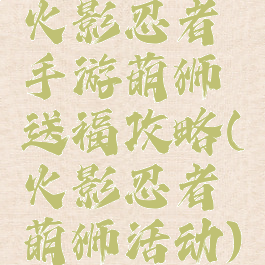 火影忍者
手游萌狮
送福攻略(
火影忍者
萌狮活动)